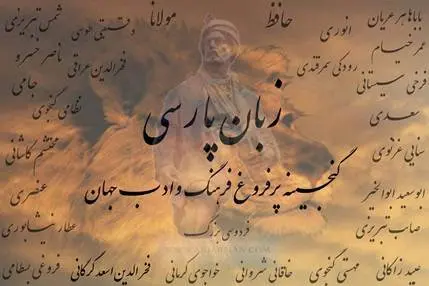 باباطاهر عریان
حافظ
مولانا
شمس تبریزی
انوری
دقیقی طوسی
عمر خیام
ناصر خسرو
رودکی سمرقندی
فخرالدین عراقی
فرخی سیستانی
جامی
زبان پارسی
نظامی گنجوی
سعدی
محتشم کاشانی
سنایی غزنوی
گنجینه پرفروغ فرهنگ و ادب جهان
ابوسعید ابوالخیر
عنصری
فردوسی بزرگ
صائب تبریزی
عطار نیشابوری
عبید زاکانی
مهستی گنجوی
خاقانی شروانی
خواجوی کرمانی
فخرالدین اسعد گرگانی
فروغی بسطامی